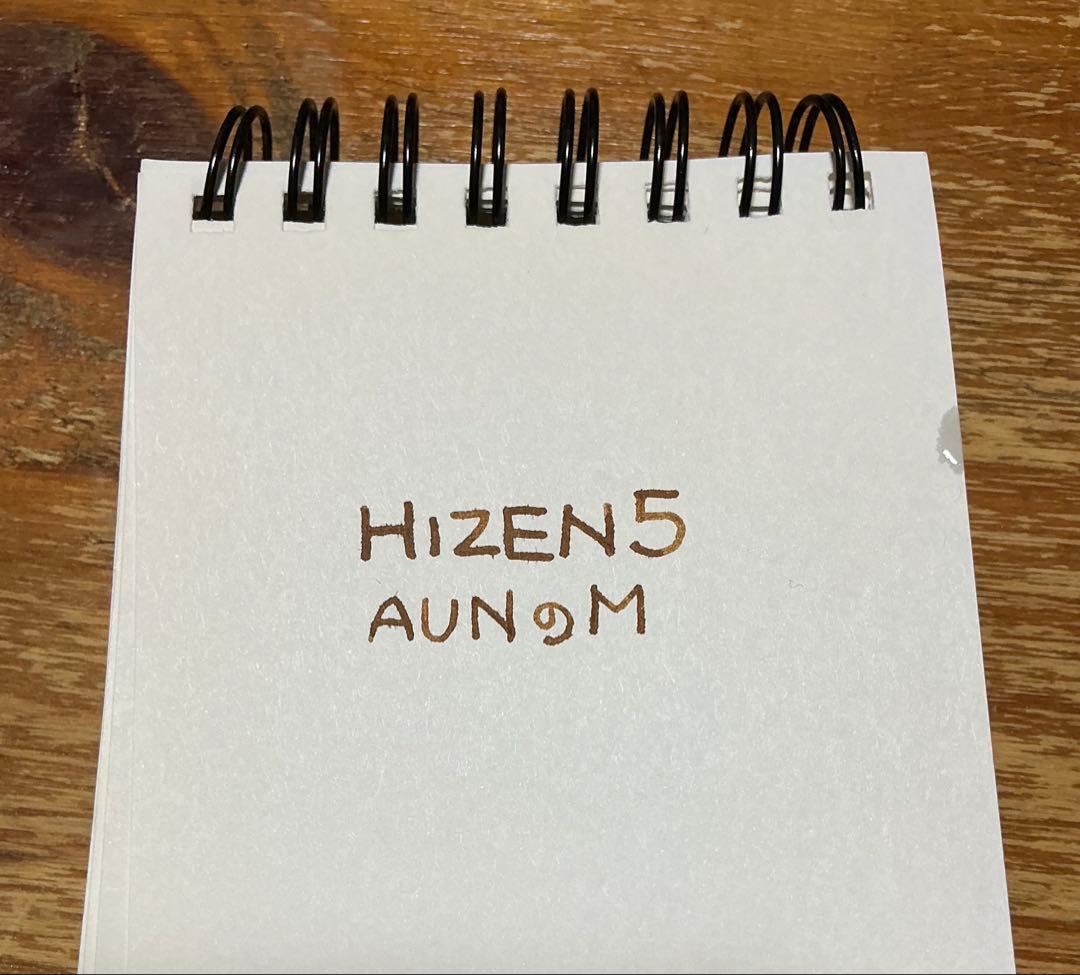 HIZEN5
AUNのM